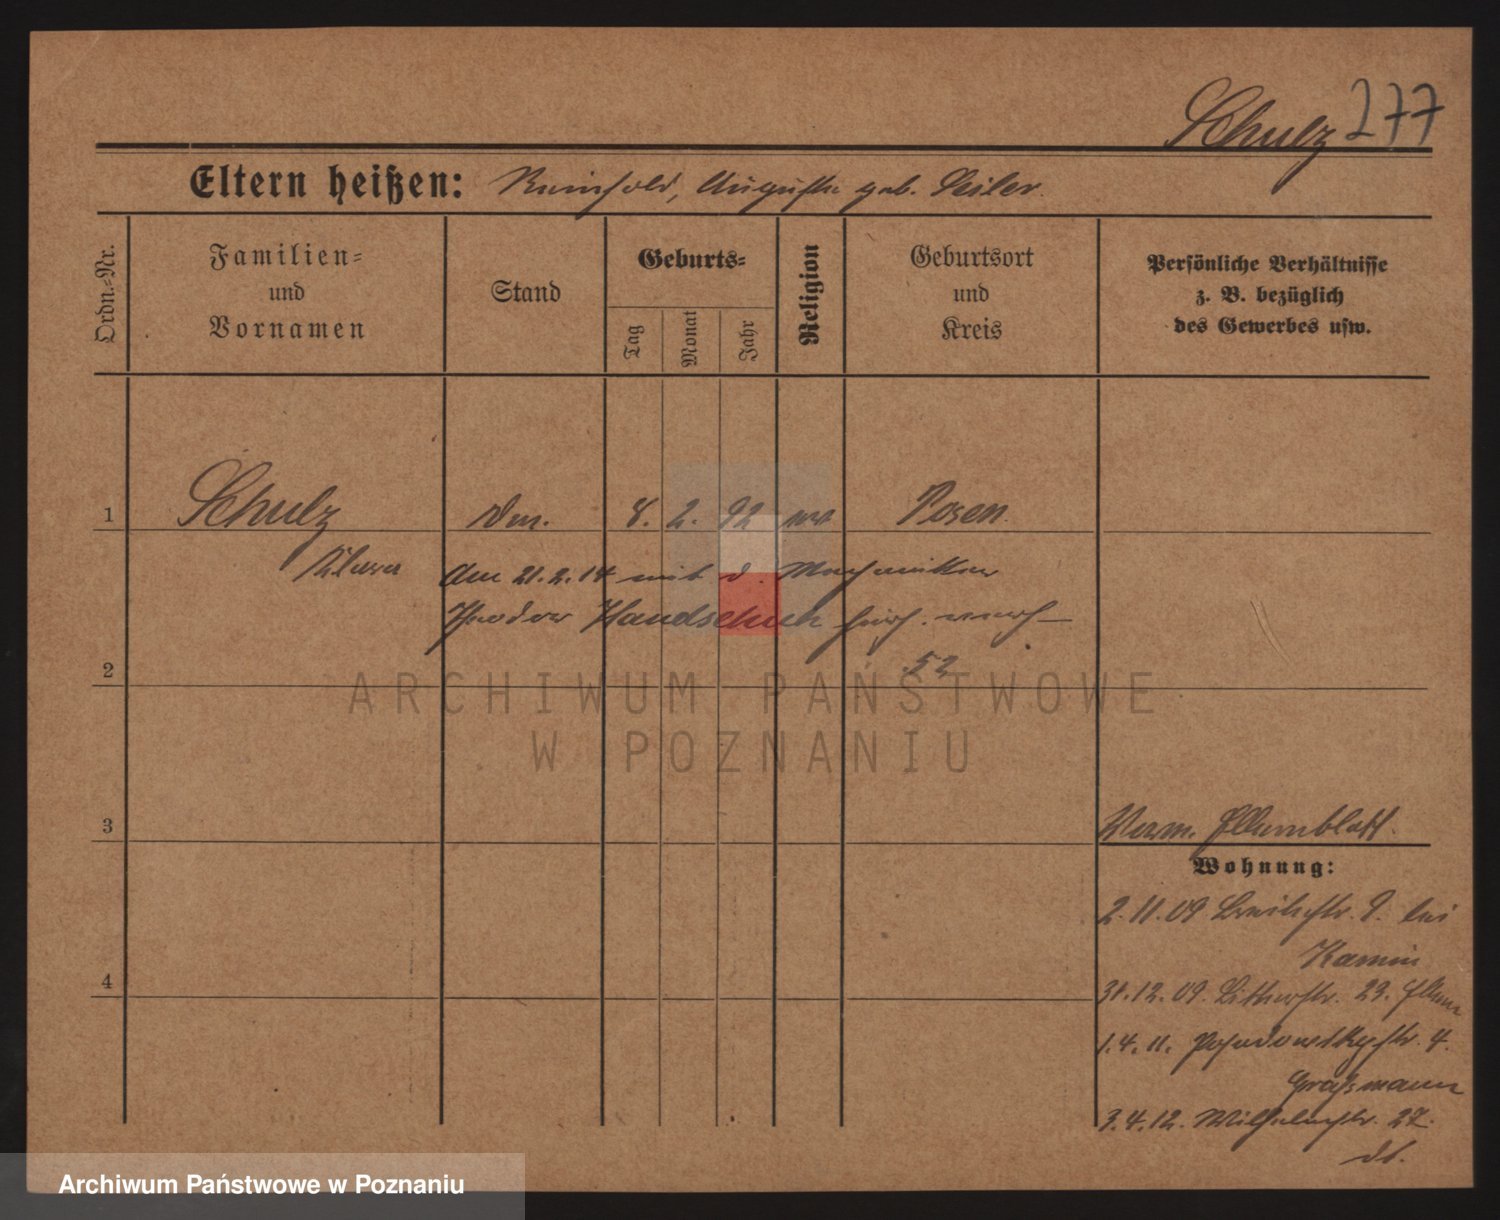 Schulz 277
Eltern heißen: Reinhold, Auguste geb. Seiler.
Ordn.-Nr.
Familien-
und
Vornamen
Stand
Geburts-
Tag
Monat
Jahr
Religion
Geburtsort
und
Kreis
Persönliche Verhältnisse
z. B. bezüglich
des Gewerbes usw.
1 Schulz 8. 2. 92 Posen.
Klara Am 21.2.14 mit d. Mechaniker
Theodor Handschuh
52
2
ARCHIWUM PAŃSTWOWE
W POZNANIU
3
Verm. Elternblatt.
Wohnung:
2.11.09 bei
Kamin
4
31.12.09. 23. Eltern
1.4.11. Posadowskystr. 4.
Graßmann
3.4.12. Wilhelmstr. 27.
Archiwum Państwowe w Poznaniu